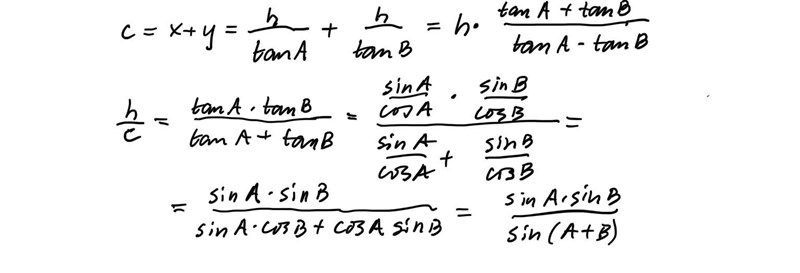 c = x+y = h/tan A + h/tan B = h · (tan A + tan B)/(tan A - tan B)
h/c = (tan A · tan B)/(tan A + tan B) = (sin A/cos A · sin B/cos B)/(sin A/cos A + sin B/cos B) =
= (sin A · sin B)/(sin A · cos B + cos A sin B) = (sin A · sin B)/(sin (A+B))